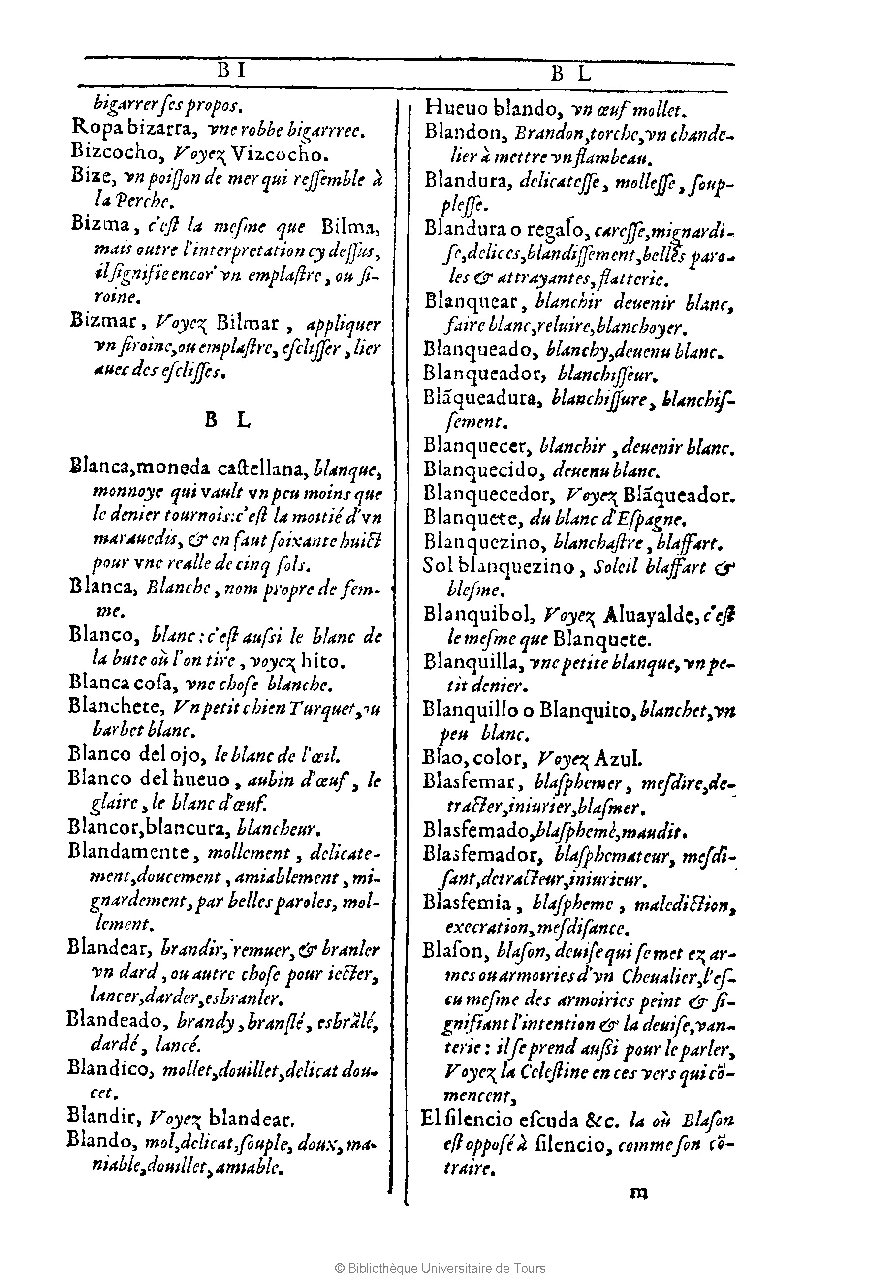 B I
bigarrer ſes propos.
Ropa bizarra, vne robbe bigarrree.
Bizcocho, Voyez Vizcocho.
Bize, vn poiſſon de mer qui reſſemble à
la Perche.
Bizma, c'eſt la meſme que Bilma,
mais outre l'interpretation cy deſſus,
il ſignifie encor' vn emplaſtre, ou ſi-
roine.
Bizmar, Voyez Bilmar, appliquer
vn ſiroine, ou emplaſtre, eſcliſſer, lier
auec des eſcliſſes.
B L
Blanca, moneda caſtellana, blanque,
monnoye qui vault vn peu moins que
le denier tournois: c'eſt la moitié d'vn
marauedis, & en faut ſoixante huict
pour vne realle de cinq ſols.
Blanca, Blanche, nom propre de fem-
me.
Blanco, blanc: c'eſt auſsi le blanc de
la bute où l'on tire, voyez hito.
Blanca coſa, vne choſe blanche.
Blanchete, Vn petit chien Turquet, ou
barbet blanc.
Blanco del ojo, le blanc de l'œil.
Blanco del hueuo, aubin d'œuf, le
glaire, le blanc d'œuf.
Blancor, blancura, blancheur.
Blandamente, mollement, delicate-
ment, doucement, amiablement, mi-
gnardement, par belles paroles, mol-
lement.
Blandear, brandir, remuer, & branler
vn dard, ou autre choſe pour iecter,
lancer, darder, esbranler.
Blandeado, brandy, branſlé, esbrãlé,
dardé, lancé.
Blandico, mollet, douillet, delicat dou-
cet.
Blandir, Voyez blandear.
Blando, mol, delicat, ſouple, doux, ma-
niable, douillet, amiable.
B L
Hueuo blando, vn œuf mollet.
Blandon, Brandon, torche, vn chande-
lier à mettre vn flambeau.
Blandura, delicateſſe, molleſſe, ſoup-
pleſſe.
Blandura o regalo, careſſe, mignardi-
ſe, delices, blandiſſement, belles paro-
les & attrayantes, flatterie.
Blanquear, blanchir deuenir blanc,
faire blanc, reluire, blanchoyer.
Blanqueado, blanchy, deuenu blanc.
Blanqueador, blanchiſſeur.
Blãqueadura, blanchiſſure, blanchiſ-
ſement.
Blanquecer, blanchir, deuenir blanc.
Blanquecido, deuenu blanc.
Blanquecedor, Voyez Blãqueador.
Blanquete, du blanc d'Eſpagne.
Blanquezino, blanchaſtre, blaffart.
Sol blanquezino, Soleil blaffart &
bleſme.
Blanquibol, Voyez Aluayalde, c'eſt
le meſme que Blanquete.
Blanquilla, vne petite blanque, vn pe-
tit denier.
Blanquillo o Blanquito, blanchet, vn
peu blanc.
Blao, color, Voyez Azul.
Blasfemar, blaſphemer, meſdire, de-
tracter, iniurier, blaſmer.
Blasfemado, blaſphemè, maudit.
Blasfemador, blaſphemateur, meſdi-
ſant, detracteur, iniurieur.
Blasfemia, blaſpheme, malediction,
execration, meſdiſance.
Blaſon, blaſon, deuiſe qui ſe met ez ar-
mes ou armoiries d'vn Cheualier, l'eſ-
cu meſme des armoiries peint & ſi-
gnifiant l'intention & la deuiſe, van-
terie: il ſe prend auſſi pour le parler,
Voyez la Celeſtine en ces vers qui cõ-
mencent,
El ſilencio eſcuda &c. la où Blaſon
eſt oppoſé à ſilencio, comme ſon cõ-
traire.
m
© Bibliothèque Universitaire de Tours